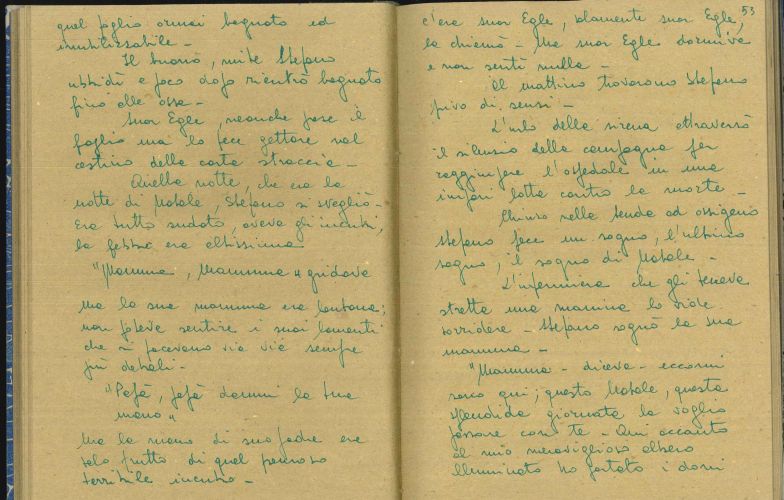 quel foglio ormai bagnato ed
inutilizzabile -
Il buono, mite Stefano
ubbidì e poco dopo rientrò bagnato
fino alle ossa -
Suor Egle, neanche prese il
foglio ma lo fece gettare nel
cestino della carta straccia -
Quella notte, che era la
notte di Natale, Stefano si svegliò -
Era tutto sudato, aveva gli incubi,
la febbre era altissima
"Mamma, Mamma" gridava
Ma la sua mamma era lontana;
non poteva sentire i suoi lamenti
che si facevano via via sempre
più deboli -
"Papà, papà dammi la tua
mano"
Ma la mano di suo padre era
solo frutto di quel penoso
terribile incubo -
53
c'era suor Egle, solamente suor Egle,
la chiamò - Ma suor Egle dormiva
e non sentì nulla -
Il mattino trovarono Stefano
privo di sensi -
L'urlo della sirena attraversò
il silenzio della campagna per
raggiungere l'ospedale in una
impari lotta contro la morte -
Chiuso nella tenda ad ossigeno
Stefano fece un sogno, l'ultimo
sogno, il sogno di Natale -
L'infermiera che gli teneva
stretta una manina lo vide
sorridere - Stefano sognò la sua
mamma -
"Mamma - diceva - eccomi
sono qui; questo Natale, questa
splendida giornata la voglio
passare con te - Qui accanto
al mio meraviglioso albero
illuminato ho portato i doni